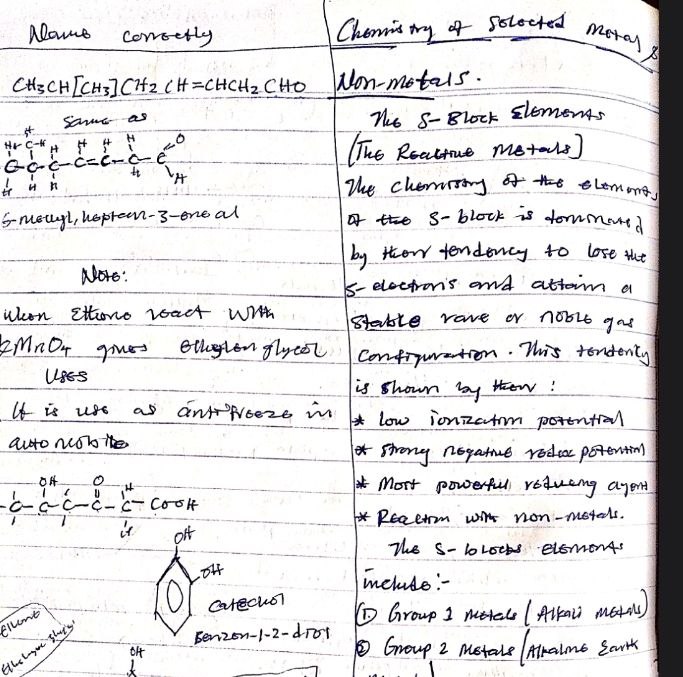 Name correctly
CH3CH[CH3]CH2CH=CHCH2CHO
same as
5-methyl, hepten-3-one al
Note:
when Ethene react with
KMnO4 gives ethylen glycol
Uses
It is use as antifreeze in
automobile
OH O H
-C-C-C-C-C-COOH
OH
OH
Catechol
Benzen-1-2-diol
OH
Chemistry of Selected Metals &
Non-metals.
The S-Block Elements
[The Reactive Metals]
The chemistry of the elements
of the S-block is dominated
by their tendency to lose the
s-electrons and attain a
stable rare or noble gas
Configuration. This tendency
is shown by their:
* low ionization potential
* strong negative redox potential
* Most powerful reducing agent
* Reaction with non-metals.
The S-blocks elements
include:-
① Group 1 metals (Alkali metals)
② Group 2 Metals (Alkaline Earth